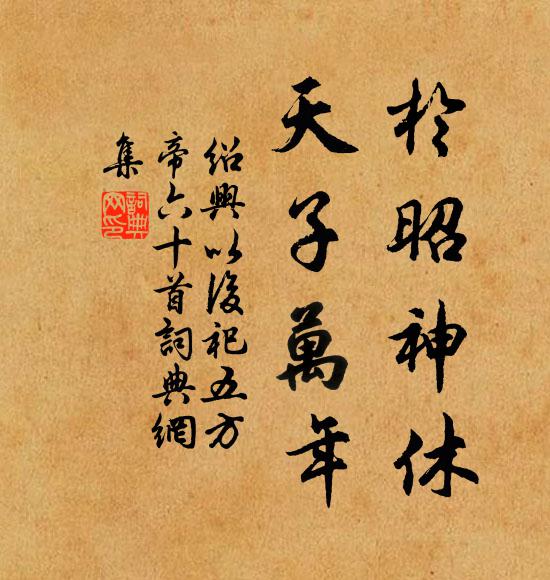 於昭神休
天子萬年
紹興以後祀五方
帝六十首詞典網
集
詞典
网印